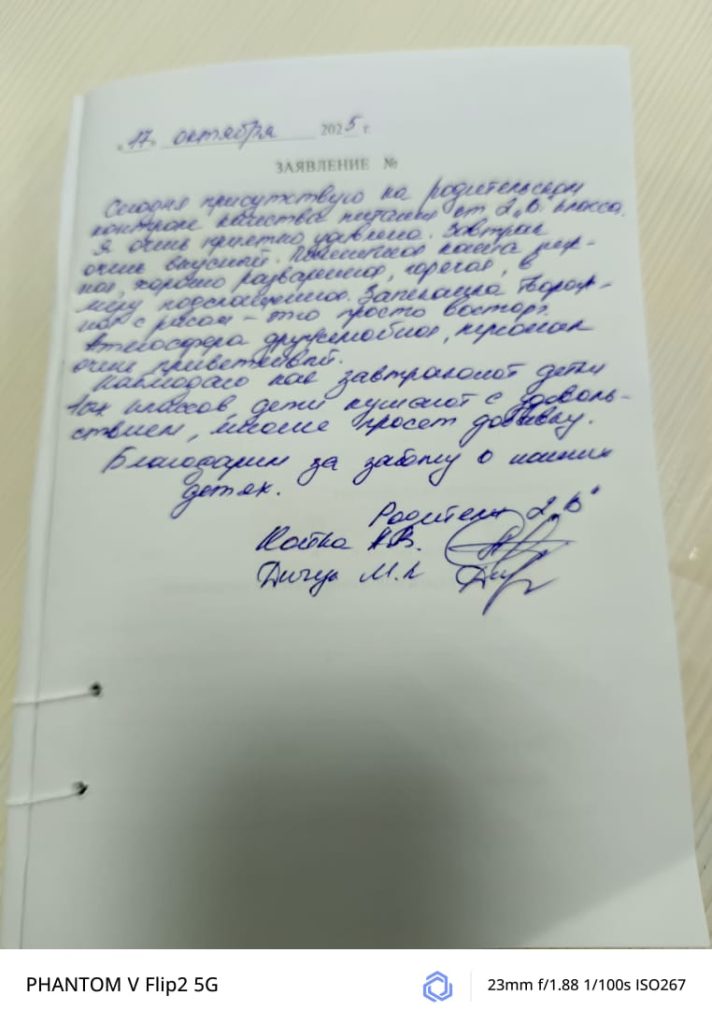 «17» октября 2025 г.
ЗАЯВЛЕНИЕ №
Сегодня присутствую на родительском
контроле качества питания от 2 „В" класса.
Я очень приятно удивлена. Завтрак
очень вкусный. Пшеничная каша неж-
ная, хорошо разваренная, горячая, в
меру подслащенная. Запеканка творож-
ная с рисом – это просто восторг.
Атмосфера дружелюбная, персонал
очень приветливый.
Наблюдаю как завтракают дети
1ых классов, дети кушают с удоволь-
ствием, многие просят добавку.
Благодарим за заботу о наших
детях.
Родители 2 „В"
В.
М.
PHANTOM V Flip2 5G
23mm f/1.88 1/100s ISO267